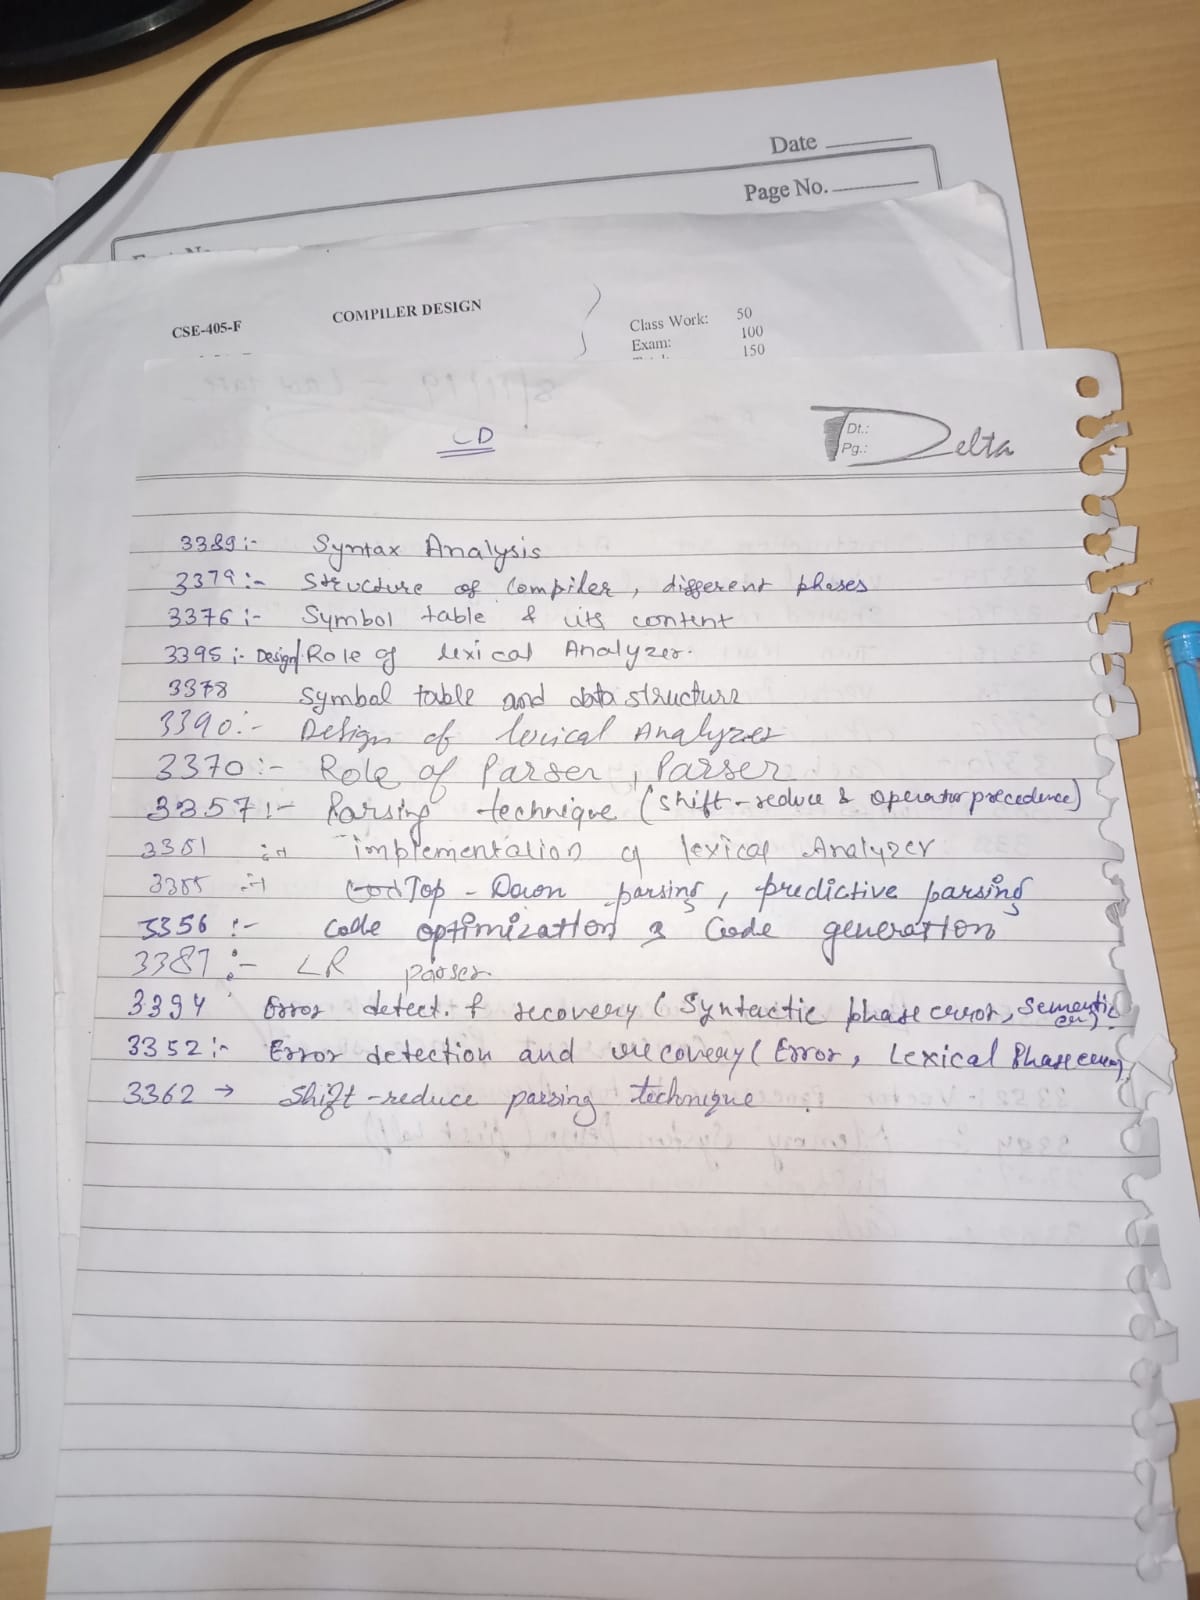 Date
Page No.
CSE-405-F
COMPILER DESIGN
Class Work: 50
Exam: 100
150
CD
Dt.:
Pg.:
Delta
3389 :- Syntax Analysis
3379 :- Structure of Compiler, different phases
3376 :- Symbol table & its content
3395 :- Design/Role of lexical Analyzer.
3378 Symbol table and data structure
3390 :- Design of lexical Analyzer
3370 :- Role of Parser, Parser
3357 :- Parsing technique (shift-reduce & operator precedence)
3351 :- implementation of lexical Analyzer
3355 :- Top-Down parsing, predictive parsing
3356 :- Code optimization & Code generation
3387 :- LR parser
3394 Error detect. & recovery (Syntactic phase error, Semantic err).
3352 :- Error detection and recovery (Error, Lexical Phase error)
3362 → Shift-reduce parsing technique